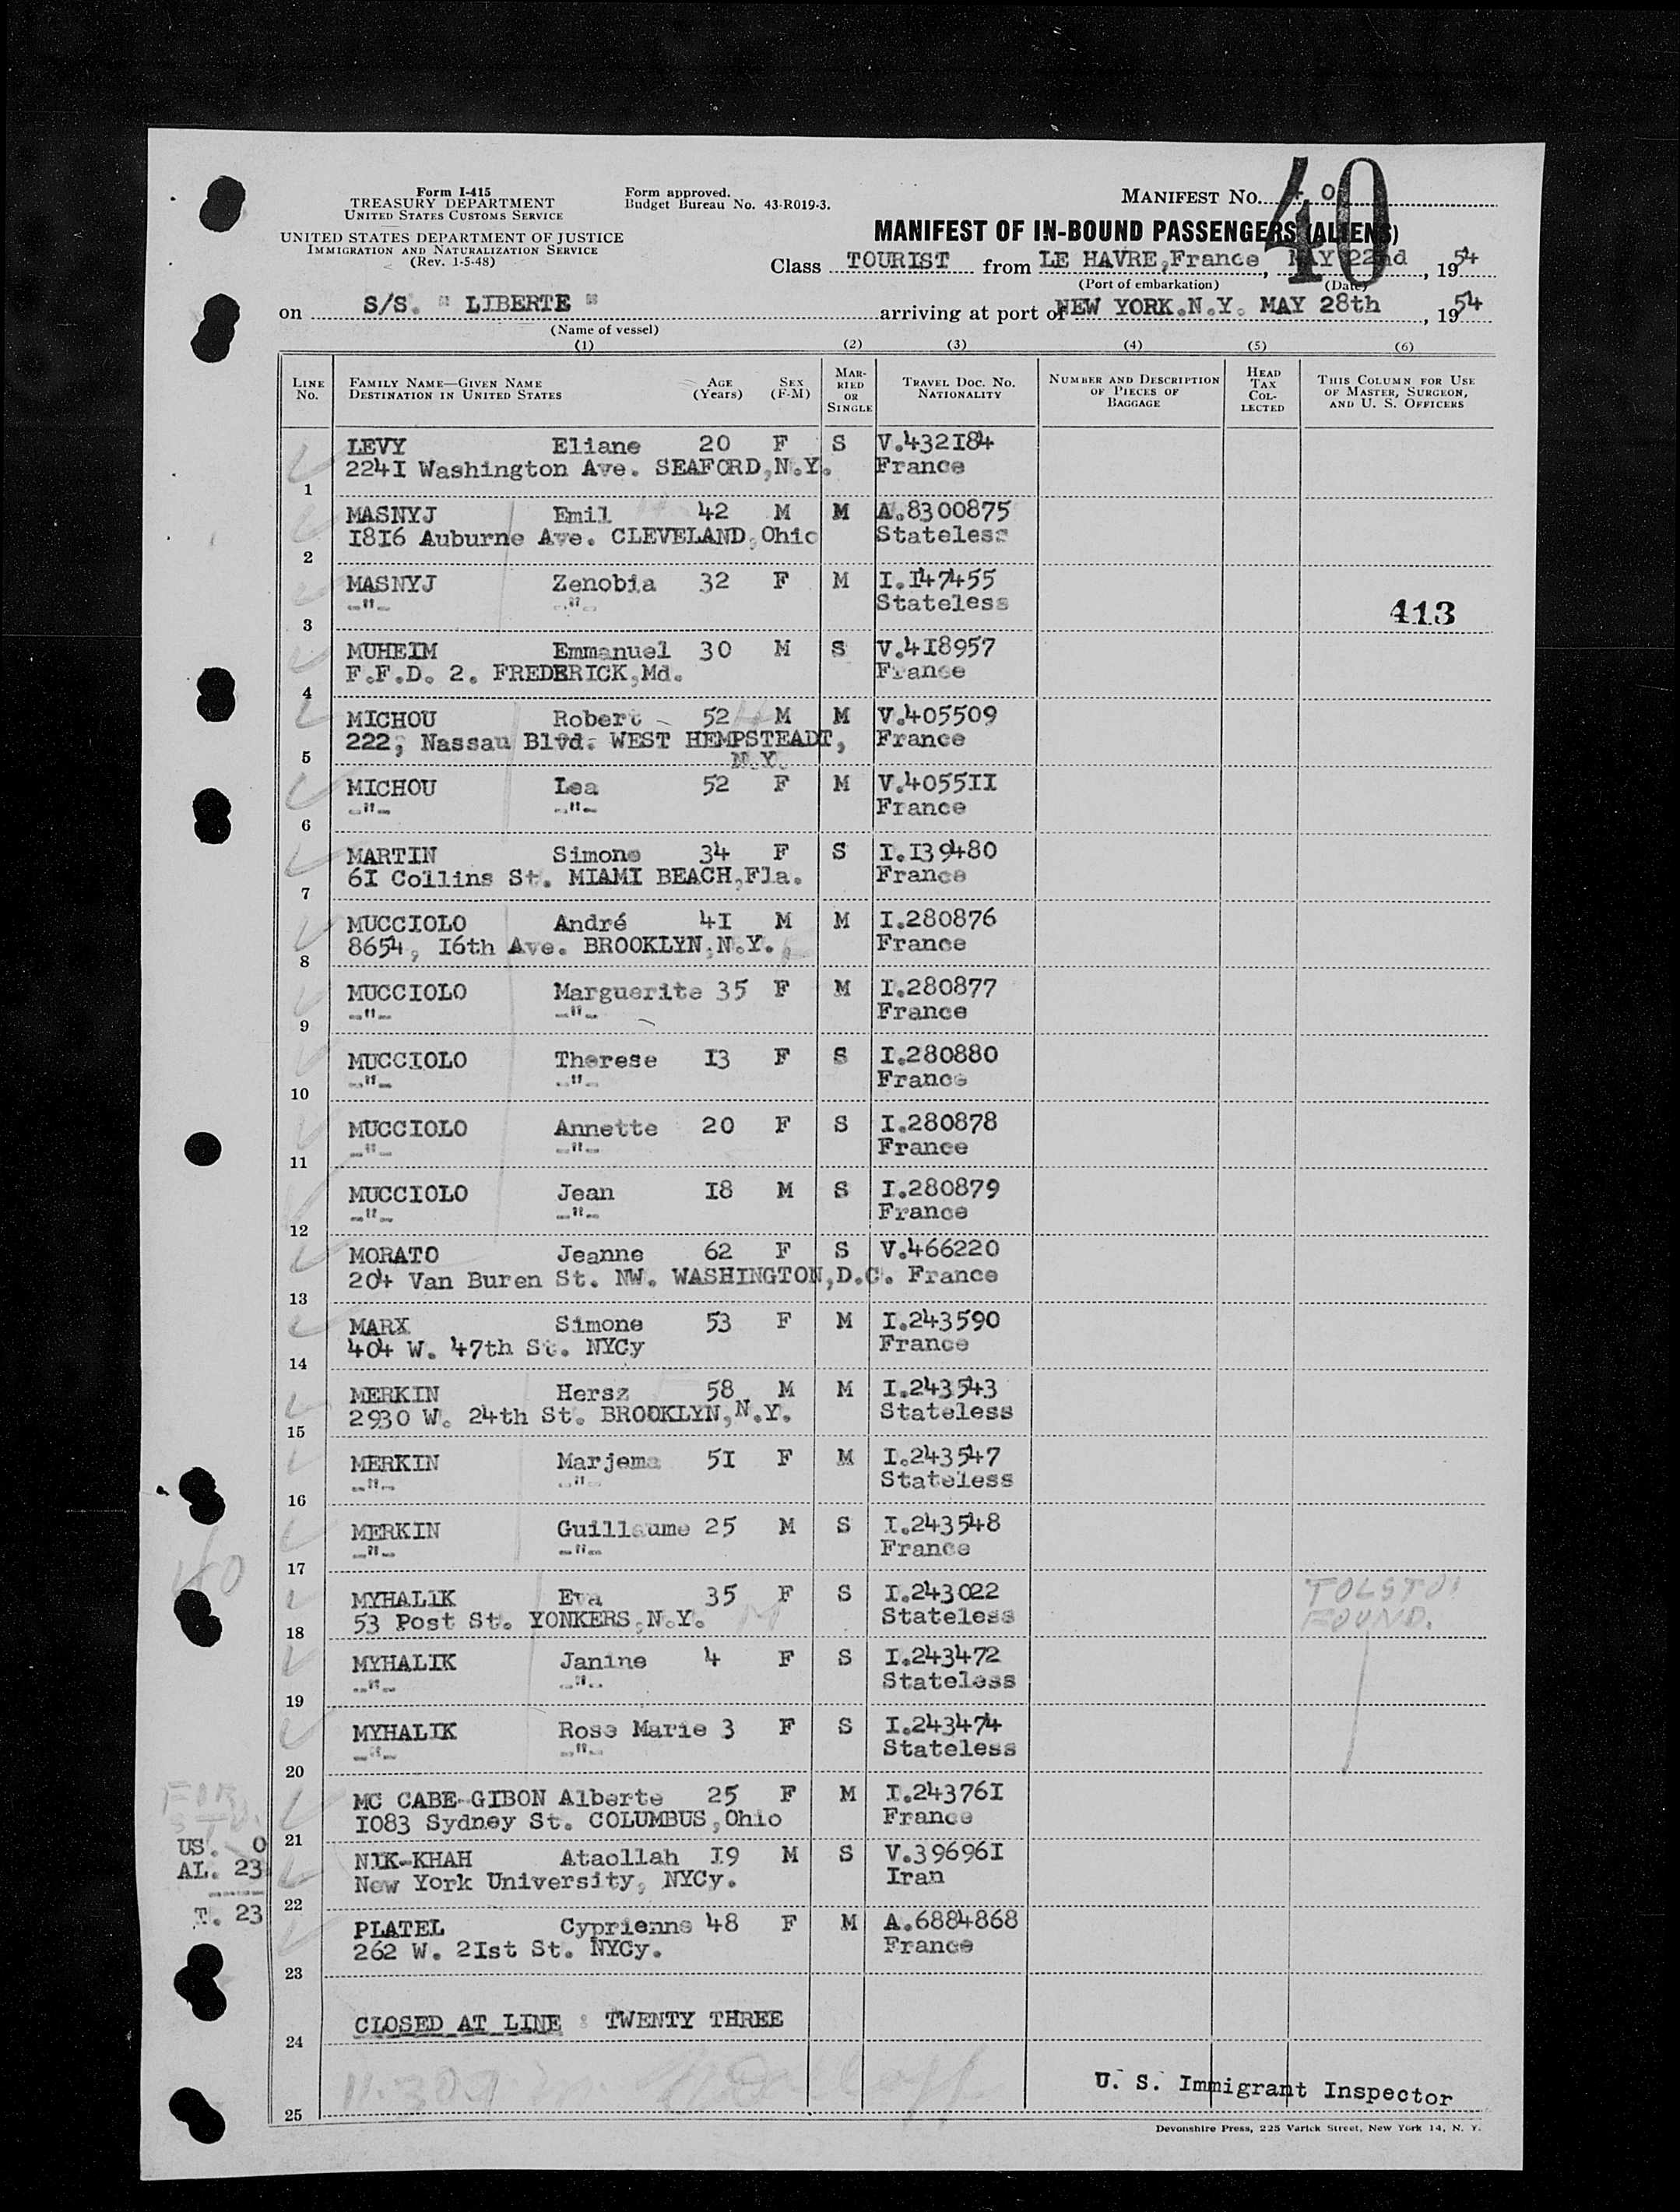 Form I-415
TREASURY DEPARTMENT
UNITED STATES CUSTOMS SERVICE
UNITED STATES DEPARTMENT OF JUSTICE
IMMIGRATION AND NATURALIZATION SERVICE
(Rev. 1-5-48)
Form approved.
Budget Bureau No. 43-R019-3.
MANIFEST NO. 40
40
MANIFEST OF IN-BOUND PASSENGERS (ALIENS)
Class TOURIST from LE HAVRE,France, MAY 22nd, 1954
(Port of embarkation) (Date)
on S/S. " LIBERTE " arriving at port of NEW YORK.N.Y. MAY 28th, 1954
(Name of vessel)
(1) (2) (3) (4) (5) (6)
LINE No. FAMILY NAME—GIVEN NAME DESTINATION IN UNITED STATES AGE (Years) SEX (F-M) MARRIED OR SINGLE TRAVEL DOC. NO. NATIONALITY NUMBER AND DESCRIPTION OF PIECES OF BAGGAGE HEAD TAX COLLECTED THIS COLUMN FOR USE OF MASTER, SURGEON, AND U. S. OFFICERS
LEVY Eliane 20 F S V.432I84
224I Washington Ave. SEAFORD,N.Y. France
1
MASNYJ Emil 42 M M A.8300875
I8I6 Auburne Ave. CLEVELAND,Ohio Stateless
2
MASNYJ Zenobia 32 F M I.I47455
-"- -"- Stateless
3 413
MUHEIM Emmanuel 30 M S V.4I8957
F.F.D. 2. FREDERICK,Md. France
4
MICHOU Robert 52 M M V.405509
222, Nassau Blvd. WEST HEMPSTEADT, France
5 N.Y.
MICHOU Lea 52 F M V.4055II
-"- -"- France
6
MARTIN Simone 34 F S I.I39480
6I Collins St. MIAMI BEACH,Fla. France
7
MUCCIOLO André 4I M M I.280876
8654, I6th Ave. BROOKLYN,N.Y. France
8
MUCCIOLO Marguerite 35 F M I.280877
-"- -"- France
9
MUCCIOLO Therese I3 F S I.280880
-"- -"- France
10
MUCCIOLO Annette 20 F S I.280878
-"- -"- France
11
MUCCIOLO Jean I8 M S I.280879
-"- -"- France
12
MORATO Jeanne 62 F S V.466220
204 Van Buren St. NW. WASHINGTON,D.C. France
13
MARX Simone 53 F M I.243590
404 W. 47th St. NYCy France
14
MERKIN Hersz 58 M M I.243543
2930 W. 24th St. BROOKLYN,N.Y. Stateless
15
MERKIN Marjema 5I F M I.243547
-"- -"- Stateless
16
MERKIN Guillaume 25 M S I.243548
-"- -"- France
17
MYHALIK Eva 35 F S I.243022 TOLSTOI
53 Post St. YONKERS,N.Y. M Stateless FOUND.
18
MYHALIK Janine 4 F S I.243472
-"- -"- Stateless
19
MYHALIK Rose Marie 3 F S I.243474
-"- -"- Stateless
20
MC CABE-GIBON Alberte 25 F M I.24376I
I083 Sydney St. COLUMBUS,Ohio France
21
NIK-KHAH Ataollah I9 M S V.39696I
New York University, NYCy. Iran
22
PLATEL Cyprienne 48 F M A.6884868
262 W. 2Ist St. NYCy. France
23
US. 0
AL. 23
T. 23
CLOSED AT LINE : TWENTY THREE
24
U. S. Immigrant Inspector
25
Devonshire Press, 225 Varick Street, New York 14, N. Y.